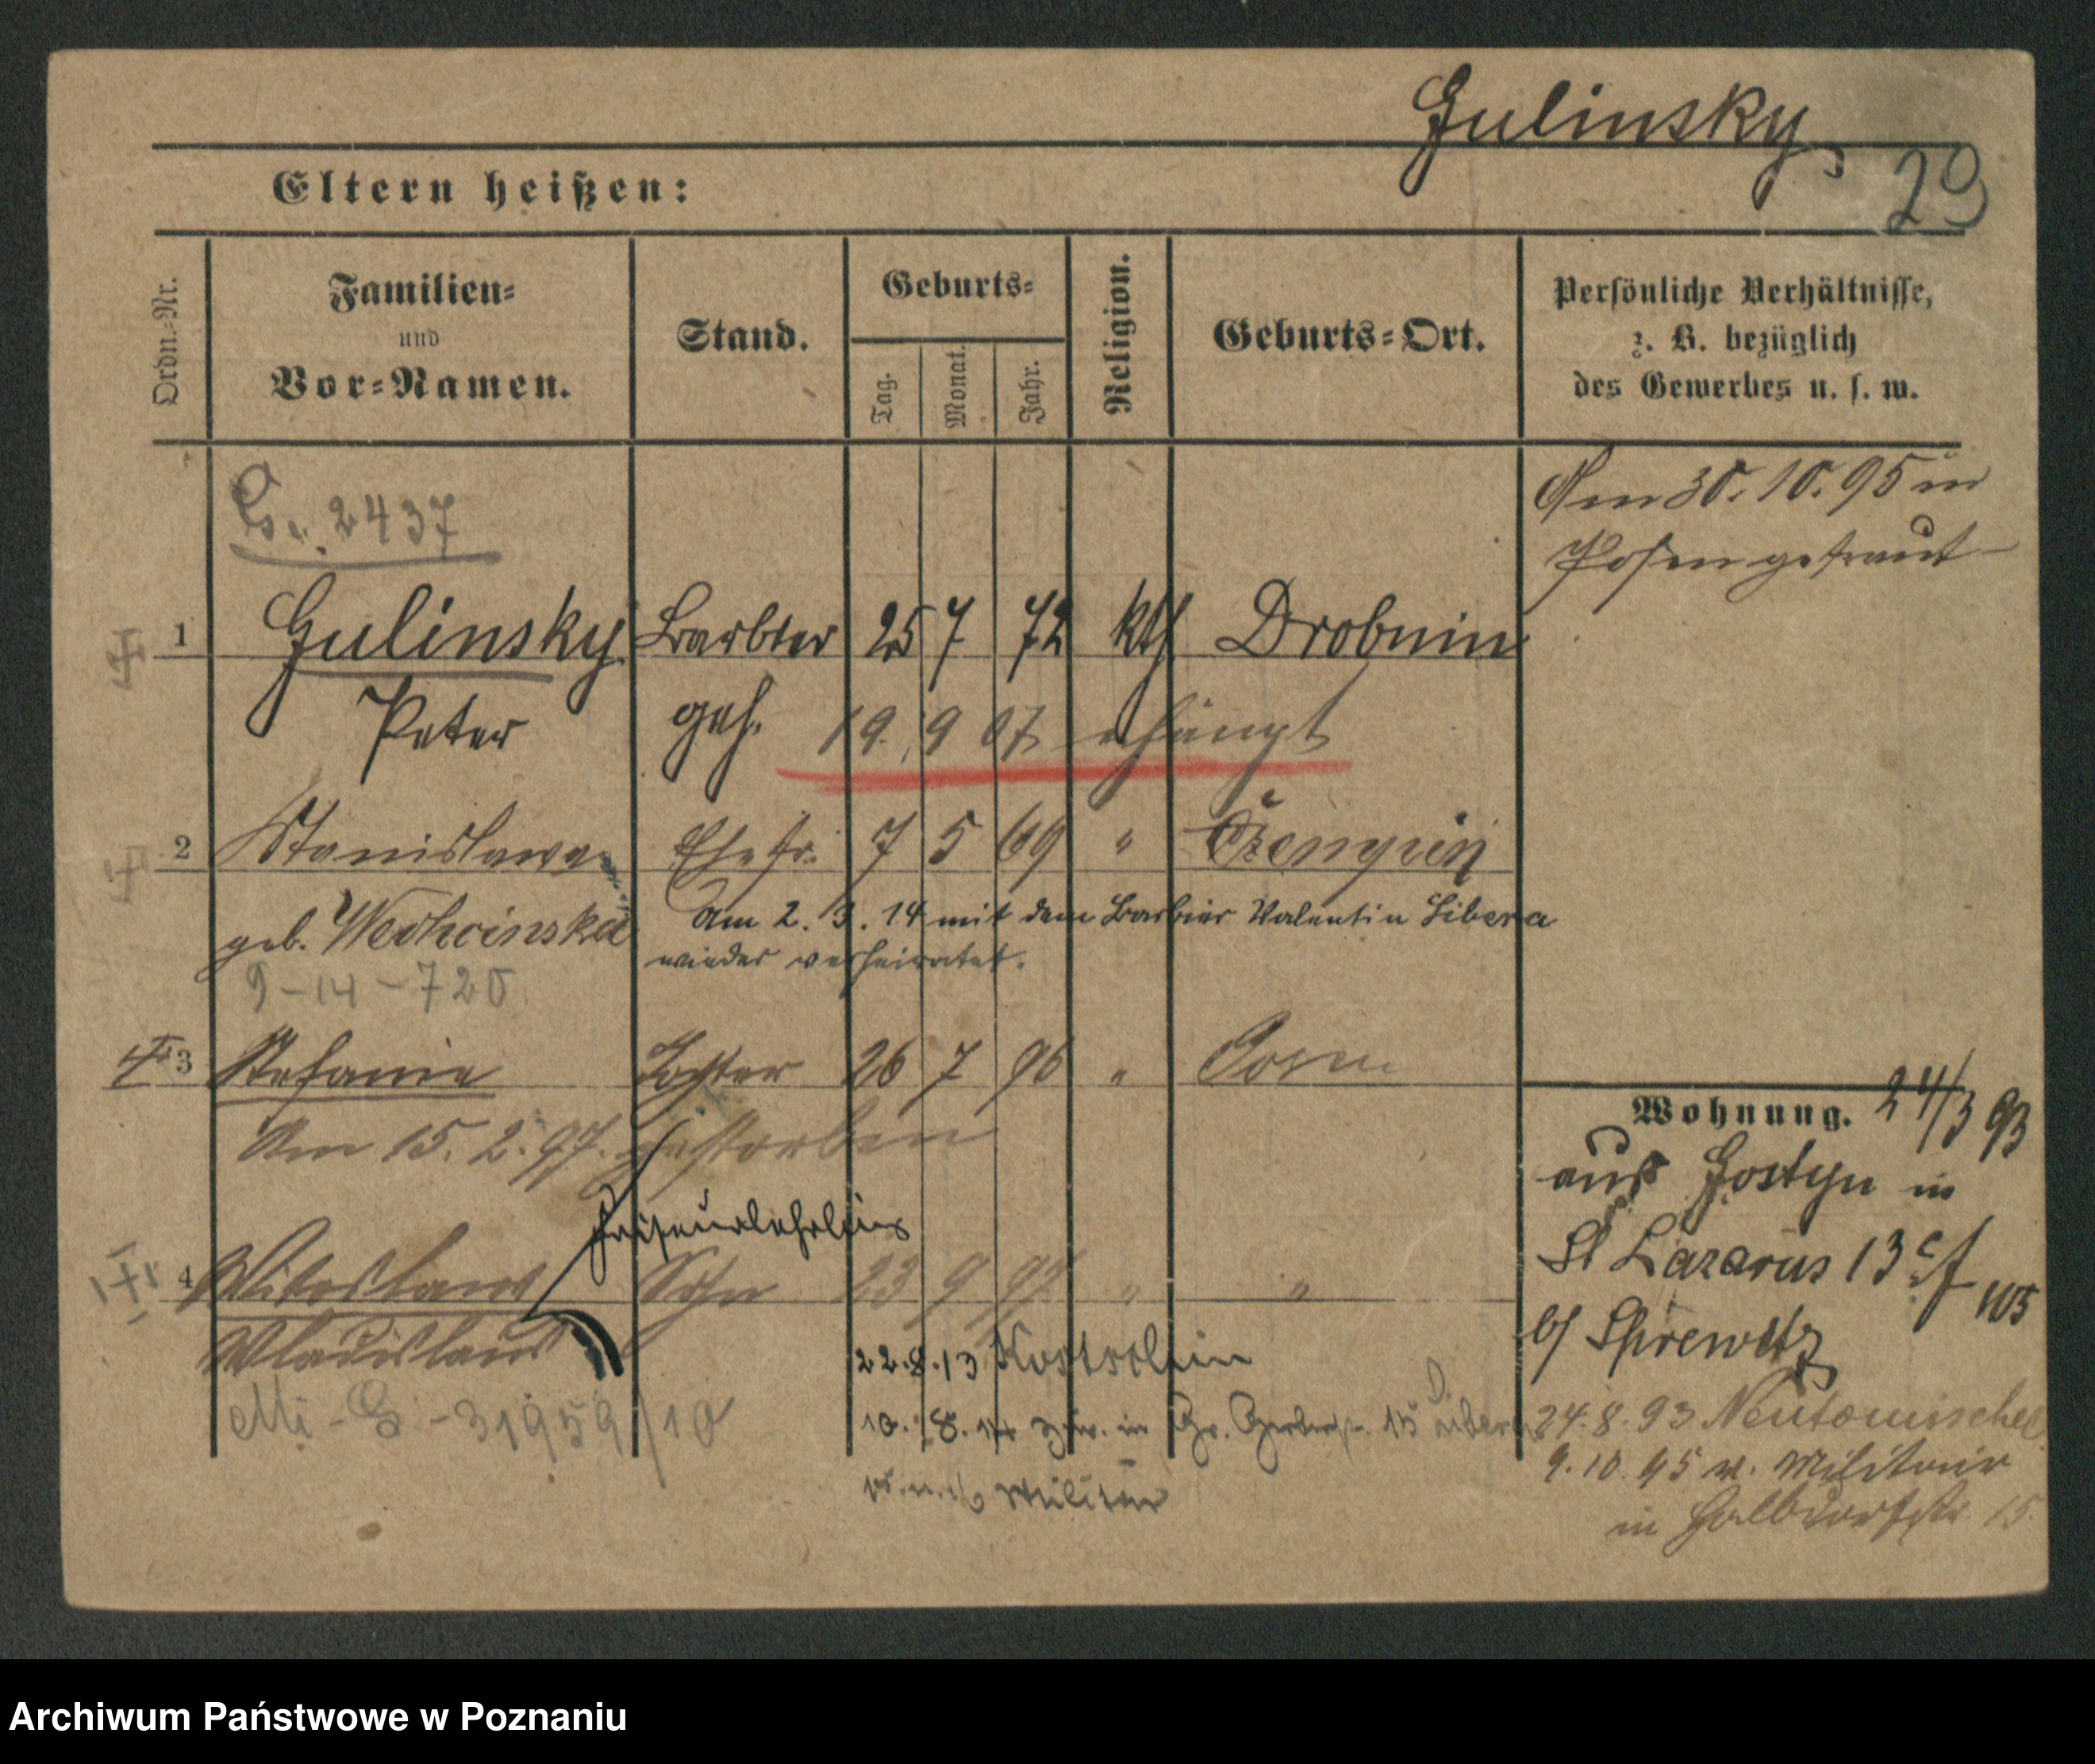 Gulinsky
29
Eltern heißen:
Ordn.-Nr.
Familien-
und
Vor-Namen.
Stand.
Geburts-
Tag.
Monat.
Jahr.
Religion.
Geburts-Ort.
Persönliche Verhältnisse,
z. B. bezüglich
des Gewerbes u. s. w.
Am 30. 10. 95 in
Posen getraut
2437
1 Gulinsky Barbier 25 7 72 kth Drobnin
Peter geh. 19. 9 07 erhängt
2 Stanislawa Ehefr. 7 5 69 "
geb.
am 2. 3. 14 mit dem Barbier Valentin Libera
wieder verheiratet.
9-14-720
3 Stefanie Tochter 26 7 96 " Posen
Am 15. 2. 97. gestorben
Friseurlehrling
4 Sohn 23 9 97 " "
Wladislaus
22.8.13
31959/10
Militär
Wohnung. 24/3 93
aus Gostyn in
St Lazarus 13
b/
24.8.93 Neutomischel
9.10.95 v. Militair
in Halbdorfstr. 15.
Archiwum Państwowe w Poznaniu